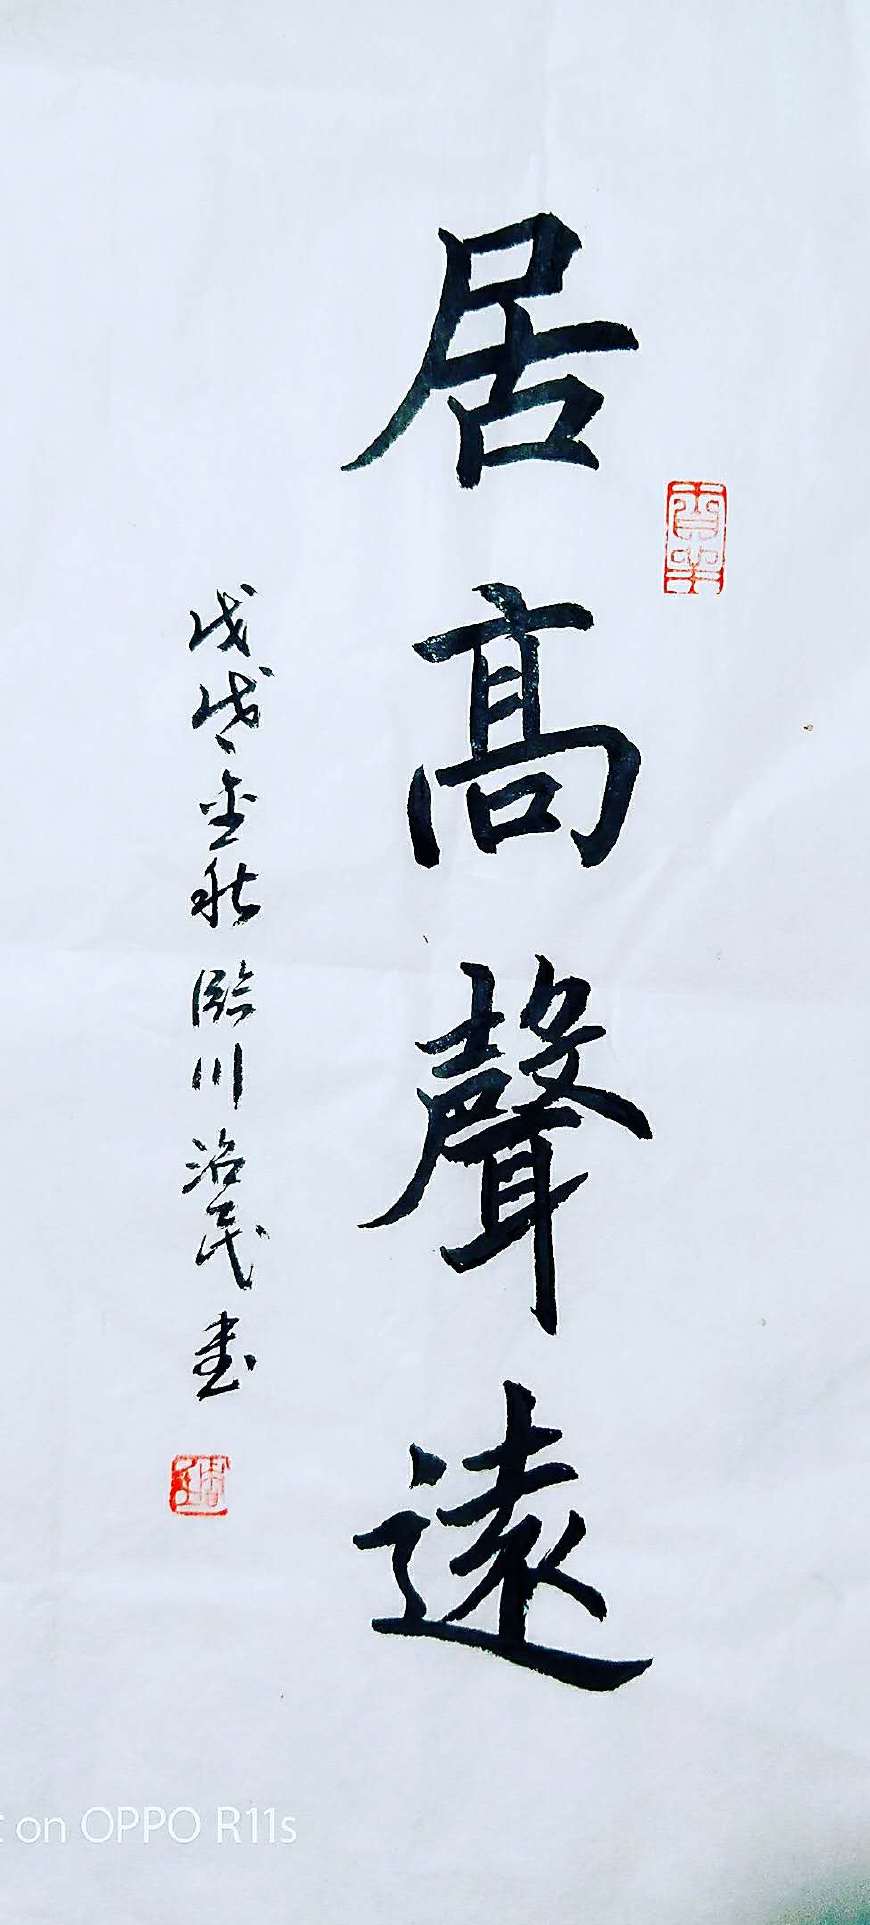 居高聲遠
戊戌金秋臨川治民书
t on OPPO R11s